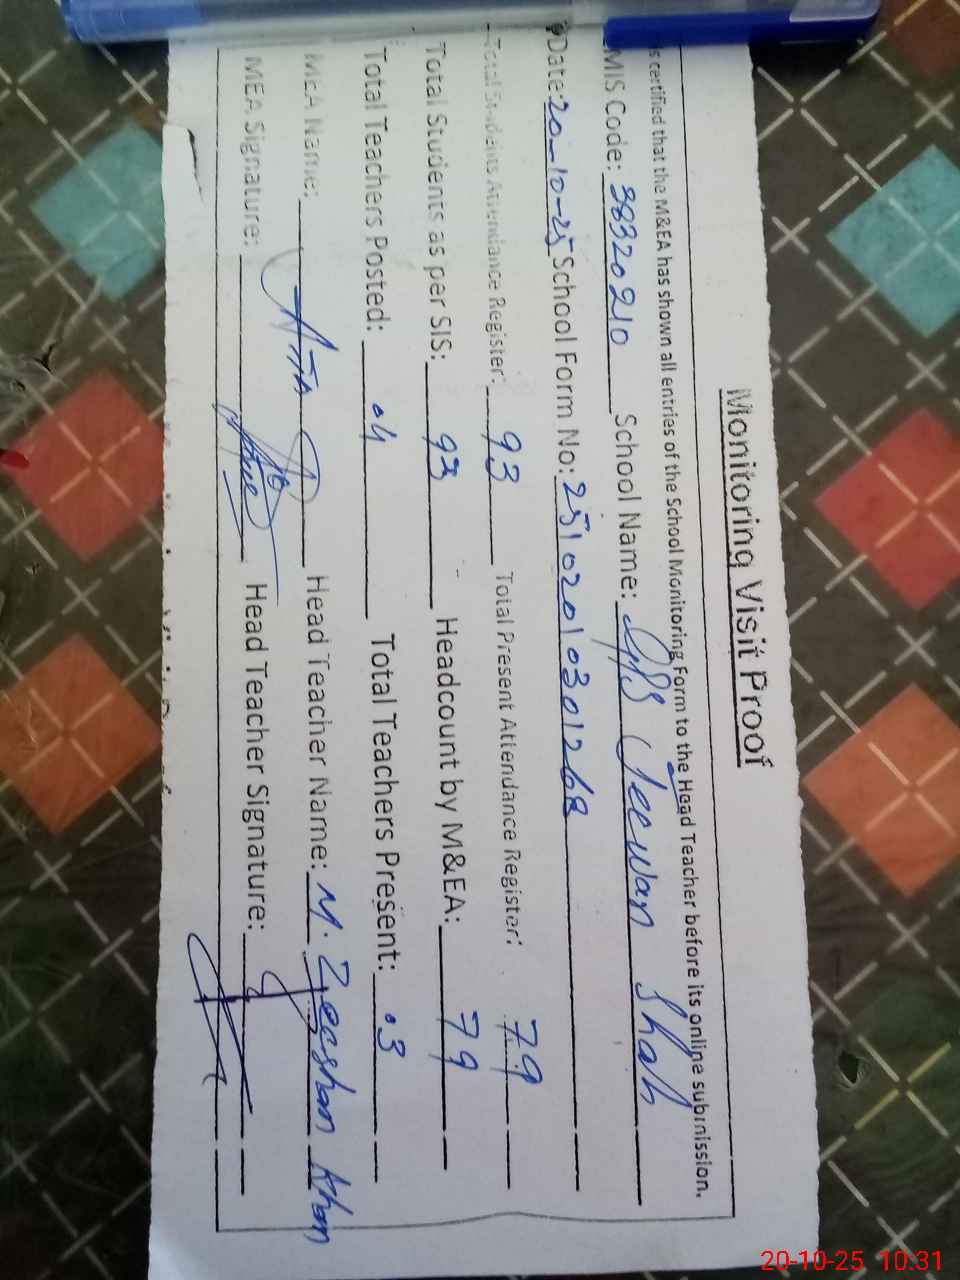 Monitoring Visit Proof
is certified that the M&EA has shown all entries of the School Monitoring Form to the Head Teacher before its online submission.
MIS Code: 38320210 School Name: GPS Jeewan Shah
Date: 20-10-25 School Form No: 25102010301268
Total Students Attendance Register: 93 Total Present Attendance Register: 79
Total Students as per SIS: 93 Headcount by M&EA: 79
Total Teachers Posted: 04 Total Teachers Present: 03
MEA Name: Head Teacher Name: M. Zeeshan Khan
MEA Signature: Head Teacher Signature:
20-10-25 10:31